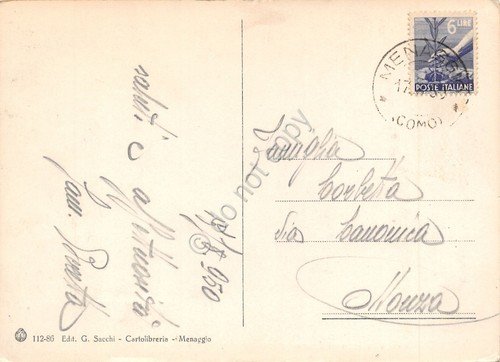 6 LIRE
POSTE ITALIANE
MENAGGIO
17
(COMO)
saluti
e affettuosità
Fam.
950
Famiglia
Corbetta
Via Canonica
Monza
do not copy
112-86 Edit. G. Sacchi - Cartolibreria - Menaggio